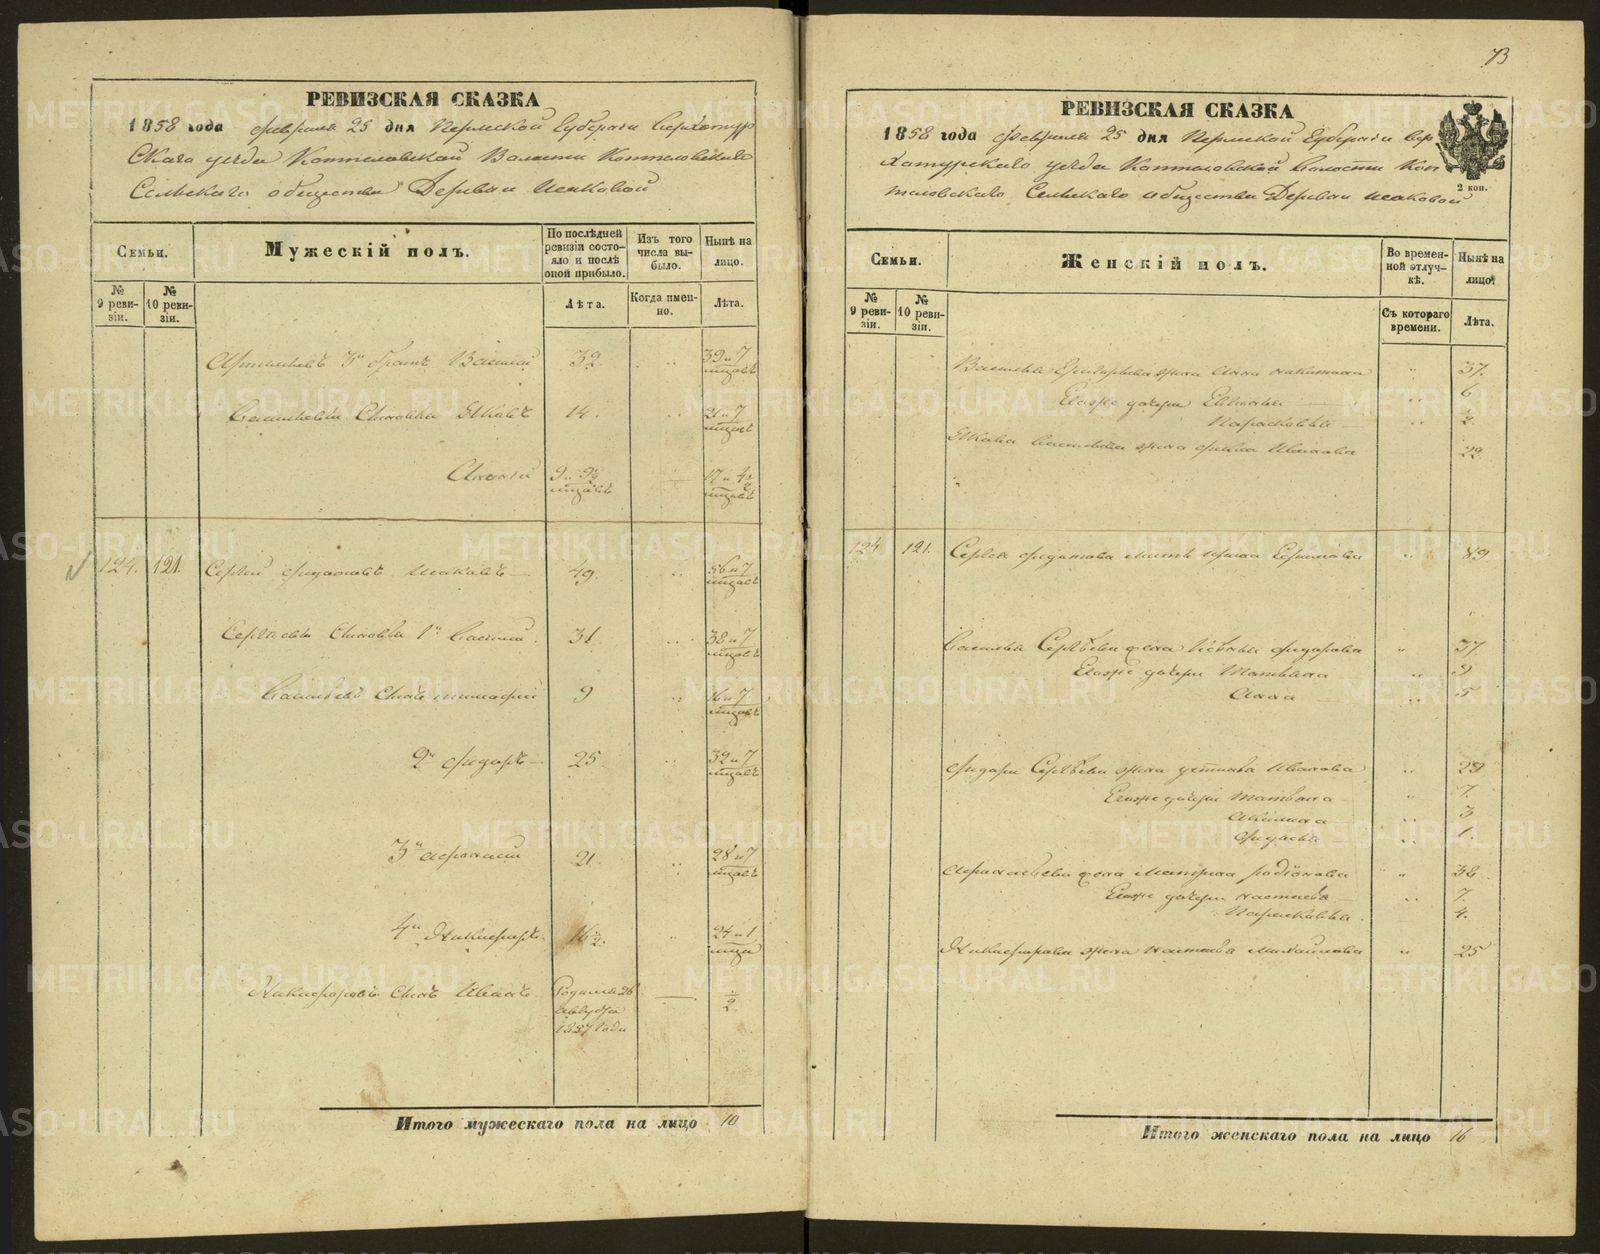 73
РЕВИЗСКАЯ СКАЗКА
1858 года февраля 25 дня Пермской Губернии Верхотур
скаго уезда Коптеловской Волости Коптеловскаго
Сельскаго общества Деревни Исаковой
Семьи.
Мужескій полъ.
По послѣдней ревизіи состояло и послѣ оной прибыло.
Изъ того числа выбыло.
Нынѣ на лицо.
№ 9 ревизіи.
№ 10 ревизіи.
Лѣта.
Когда именно.
Лѣта.
3й братъ Василій 32 39 и 7 мцовъ
Васильевы Сыновья 14 21 и 7 мцовъ
17 и
мцовъ
124. 121. Сергѣй Исаковъ 49. 56 и 7 мцовъ
Сергѣевы Сыновья 1й Василий 31 38 и 7 мцовъ
Васильевъ Сынъ Тимофей 9 16 и 7 мцовъ
2й Фидоръ 25 32 и 7 мцовъ
3й Афонасий 21 28 и 7 мцовъ
4й Никифоръ 24 и 1 мцъ
Никифоровъ Сынъ Иванъ Родился 26 1857 года ½
Итого мужескаго пола на лицо 10
РЕВИЗСКАЯ СКАЗКА
1858 года Февраля 25 дня Пермской Губернии Вер
хотурскаго уезда Коптеловской Волости Коп
теловскаго Сельскаго общества Деревни Исаковой
2 коп.
Семьи.
Женскій полъ.
Во временной отлучкѣ.
Нынѣ на лицо.
№ 9 ревизіи.
№ 10 ревизіи.
Съ котораго времени.
Лѣта.
Василья Григорьева жена Анна Никитина 37.
Егоже дочери 6
Парасковья ½
Васильева жена Иванова 22
124 121. Сергея Фидотова мать Ирина 89
Василья Сергѣева жена Фидорова 37.
Егоже дочери Татьяна 9
Анна 5
Фидора Сергѣева жена Устинья Иванова 29
Егоже дочери Татьяна 7.
Акилина 3
1.
жена Матрена Радіонова 32
Егоже дочери Настасья 7.
Парасковья 4.
Никифорова жена Настасья Михайлова 25
Итого женскаго пола на лицо 16
METRIKI.GASO-URAL.RU